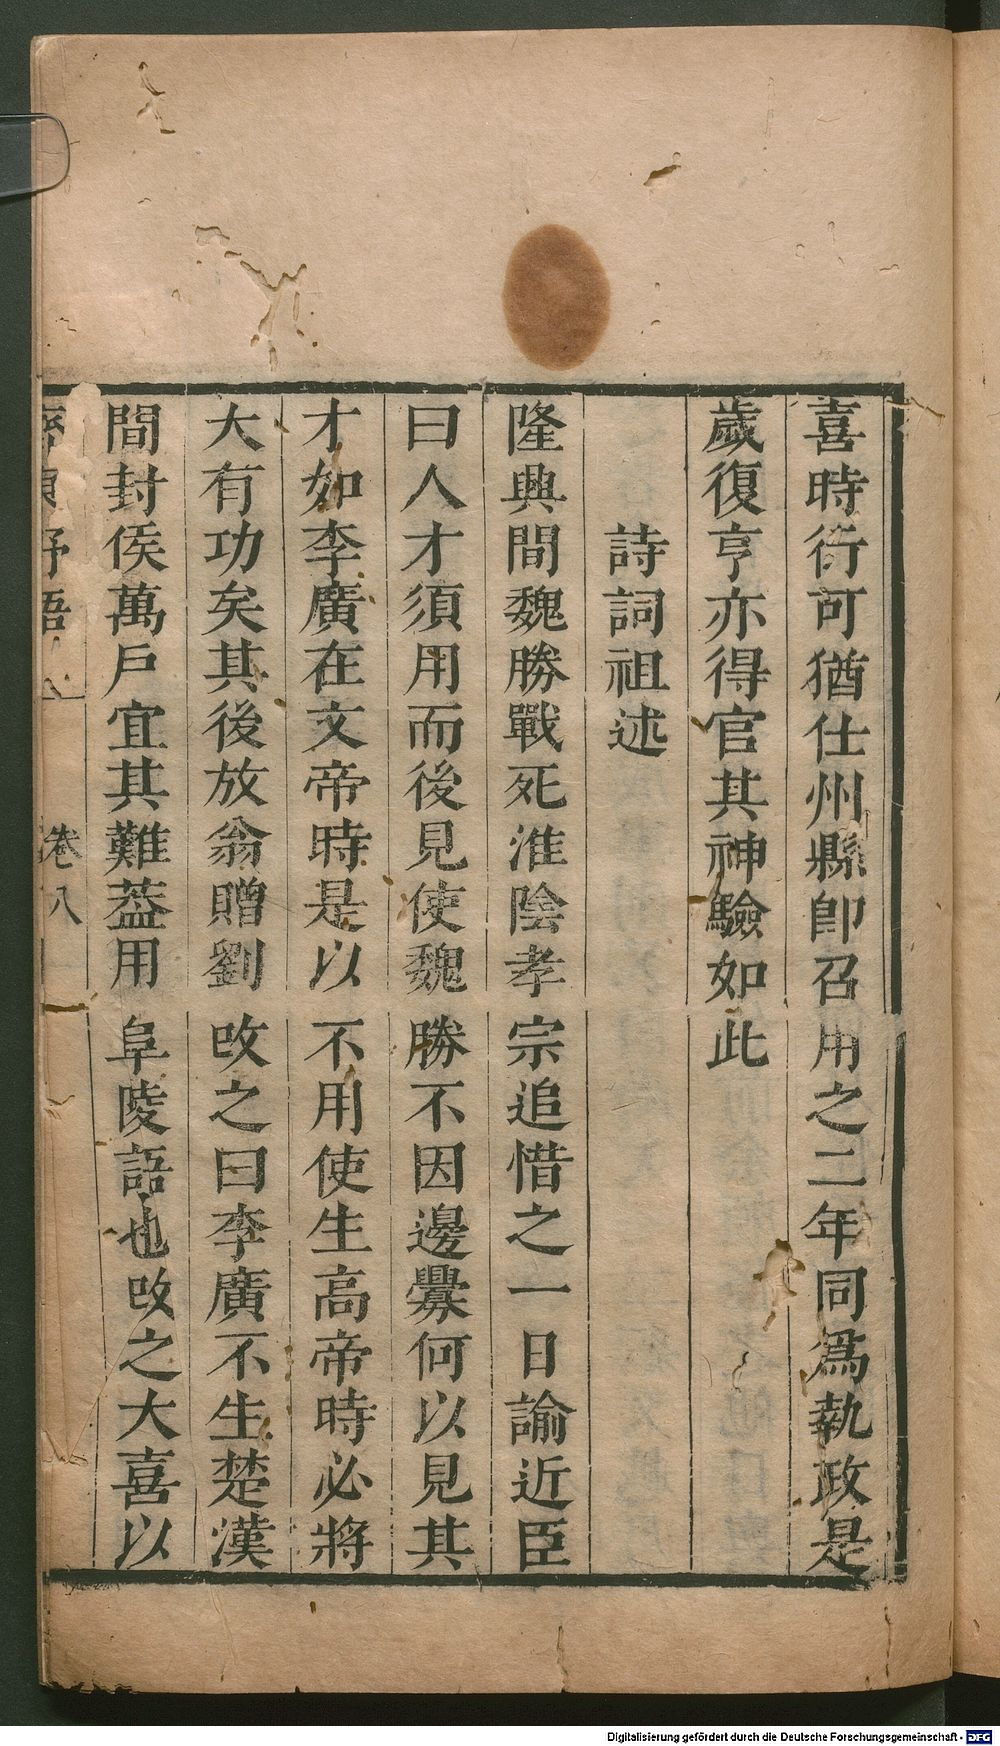 喜時衍可猶仕州縣卽召用之二年同爲執政是
歲復亨亦得官其神驗如此
詩詞祖述
隆興間魏勝戰死淮陰孝宗追惜之一日諭近臣
曰人才須用而後見使魏勝不因邊釁何以見其
才如李廣在文帝時是以不用使生高帝時必將
大有功矣其後放翁贈劉改之曰李廣不生楚漢
間封侯萬戶宜其難葢用阜陵語也改之大喜以
齊東野語 卷八
Digitalisierung gefördert durch die Deutsche Forschungsgemeinschaft - DFG